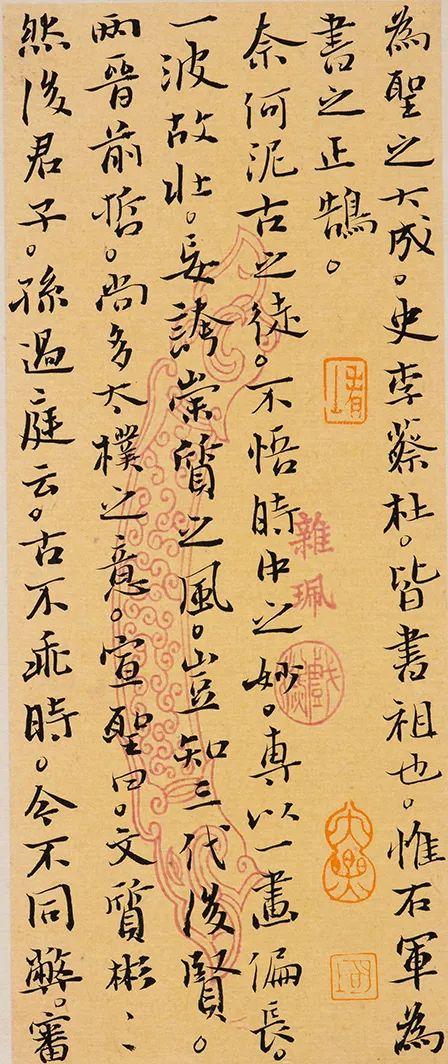 為聖之大成。史李蔡杜。皆書祖也。惟右軍為
書之正鵠。
奈何泥古之徒。不悟時中之妙。專以一畫偏長。
一波故壯。妄誇崇質之風。豈知三代後賢。
兩晉前哲。尚多太樸之意。宣聖曰。文質彬〻
然後君子。孫過庭云。古不乖時。今不同弊。審
雜珮